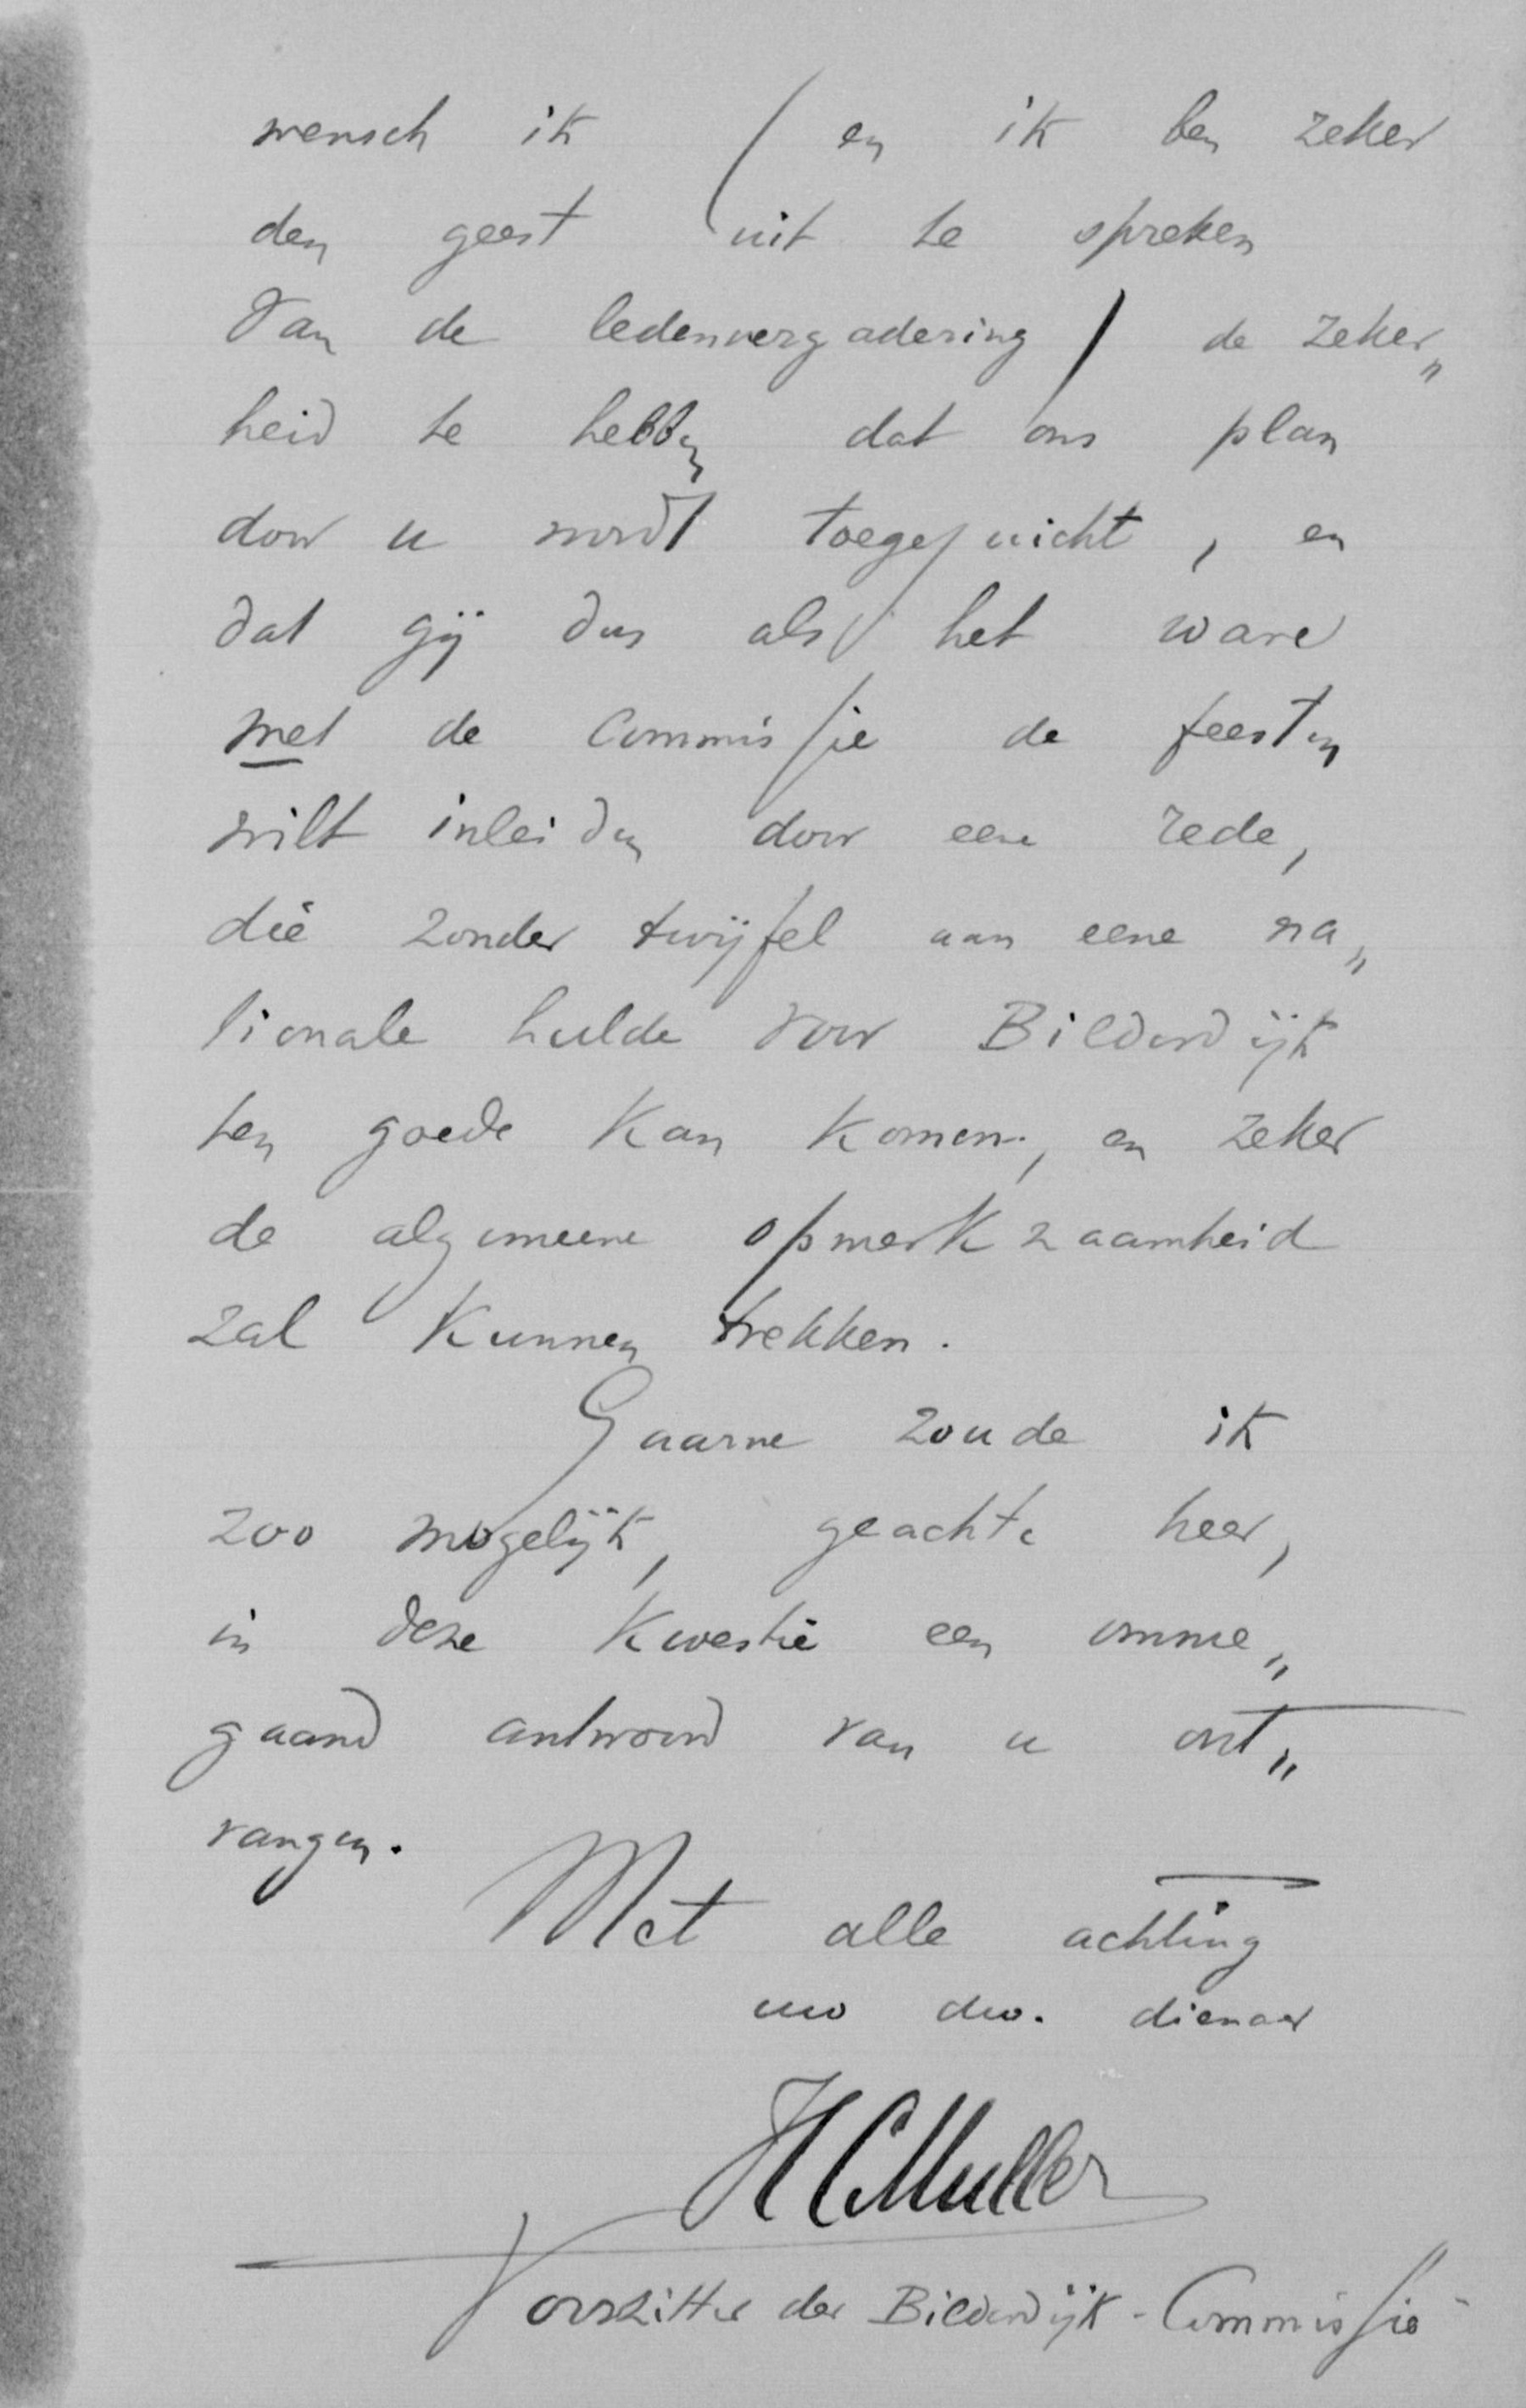 wensch ik (en ik ben zeker
den geest uit te spreken
van de ledenvergadering) de zeker„
heid te hebben dat ons plan
door u wordt toegejuicht, en
dat gij dus als het ware
met de Commissie de feesten
wilt inleiden door eene rede,
die zonder twijfel aan eene na„
tionale hulde voor Bilderdijk
ten goede kan komen, en zeker
de algemeene opmerkzaamheid
zal kunnen trekken.
Gaarne zoude ik
zoo mogelijk, geachte heer,
in deze kwestie een omme„
gaand antwoord van u ont„
vangen.
Met alle achting
uw dw. dienaar
HCMuller
Voorzitter der Bilderdijk-Commissie